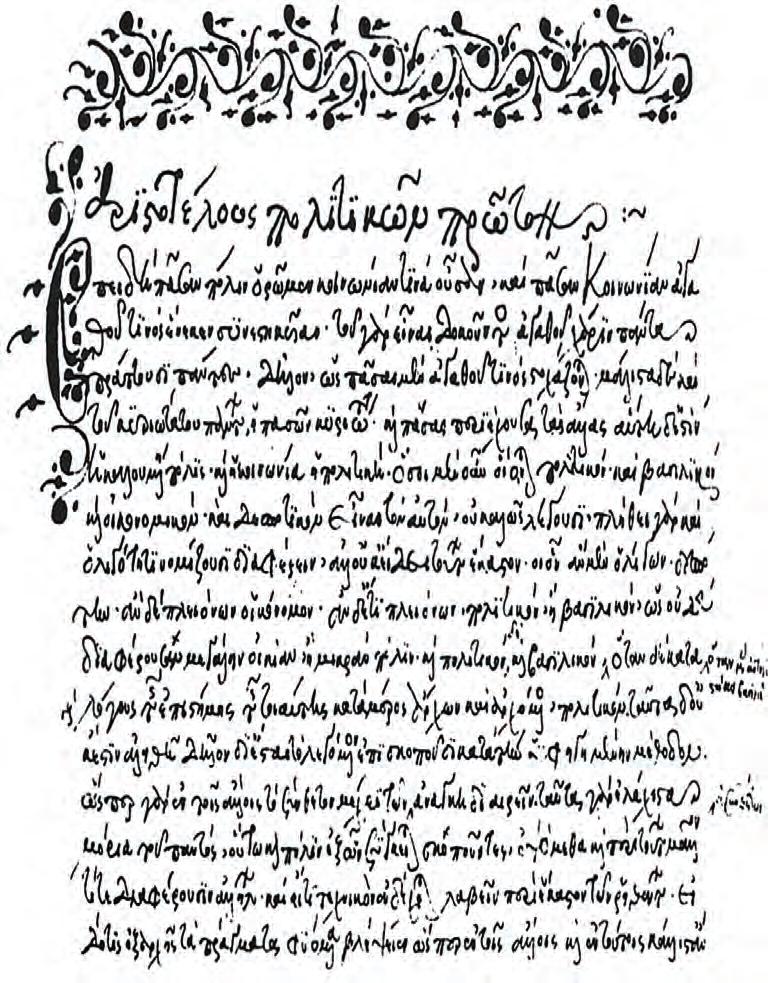 Ἀριστοτέλους πολιτικῶν πρῶτον
Ἐπειδὴ πᾶσαν πόλιν ὁρῶμεν κοινωνίαν τινὰ οὖσαν, καὶ πᾶσαν κοινωνίαν ἀγα
θοῦ τινὸς ἕνεκεν συνεστηκυῖαν· τοῦ γὰρ εἶναι δοκοῦντος ἀγαθοῦ χάριν πάντα
πράττουσι πάντες· δῆλον ὡς πᾶσαι μὲν ἀγαθοῦ τινὸς στοχάζονται· μάλιστα δὲ καὶ
τοῦ κυριωτάτου πάντων, ἡ πασῶν κυριωτάτη· καὶ πάσας περιέχουσα τὰς ἄλλας αὕτη δ' ἐστὶν
ἡ καλουμένη πόλις καὶ ἡ κοινωνία ἡ πολιτική· ὅσοι μὲν οὖν οἴονται πολιτικὸν καὶ βασιλικὸν
καὶ οἰκονομικὸν καὶ δεσποτικὸν εἶναι τὸν αὐτὸν, οὐ καλῶς λέγουσι· πλήθει γὰρ καὶ
ὀλιγότητι νομίζουσι διαφέρειν, ἀλλ' οὐκ εἴδει τούτων ἕκαστον· οἷον ἂν μὲν ὀλίγων δεσπό
την· ἂν δὲ πλειόνων οἰκονόμον· ἂν δ' ἔτι πλειόνων πολιτικὸν ἢ βασιλικὸν, ὡς οὐδὲν
διαφέρουσαν μεγάλην οἰκίαν ἢ μικρὰν πόλιν· καὶ πολιτικὸν καὶ βασιλικὸν, ὅταν δὲ κατὰ
λόγους τῆς ἐπιστήμης τῆς τοιαύτης κατὰ μέρος ἄρχων καὶ ἀρχόμενος, πολιτικὸν. ταῦτα δ' οὐ
κ ἔστιν ἀληθῆ. δῆλον δ' ἔσται τὸ λεγόμενον ἐπισκοποῦσι κατὰ τὴν ὑφηγημένην μέθοδον.
ὥσπερ γὰρ ἐν τοῖς ἄλλοις τὸ σύνθετον μέχρι τῶν ἀσυνθέτων ἀνάγκη διαιρεῖν. ταῦτα γὰρ ἐλάχιστα
μόρια τοῦ παντὸς, οὕτω καὶ πόλιν ἐξ ὧν σύγκειται σκοποῦντες, ὀψόμεθα καὶ περὶ τούτων μᾶλλον
τί τε διαφέρουσιν ἀλλήλων· καὶ εἴ τι τεχνικὸν ἐνδέχεται λαβεῖν περὶ ἕκαστον τῶν ῥηθέντων. Εἰ
δή τις ἐξ ἀρχῆς τὰ πράγματα φυόμενα βλέψειεν ὥσπερ ἐν τοῖς ἄλλοις καὶ ἐν τούτοις κάλλιστ'